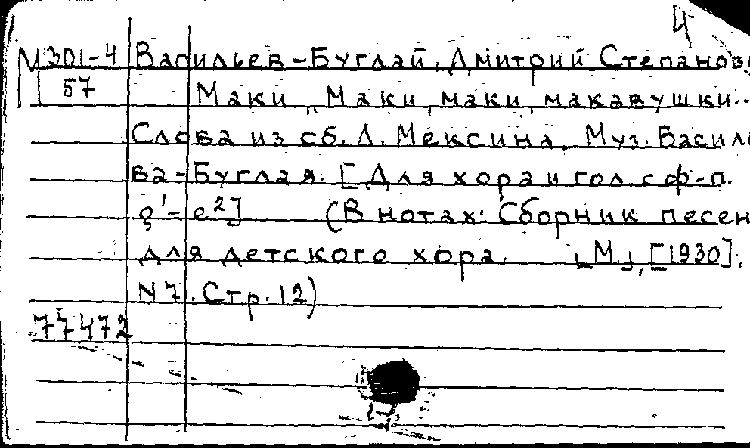 4
М301-4 Васильев-Буглай, Дмитрий Степанов
57 Маки, Маки, маки, макавушки..
Слова из сб. А. Мексина. Муз. Василь
ва-Буглая. [Для хора и гол. с ф-п.
e²] (В нотах: Сборник песен
для детского хора. [М], [1930].
N 7. Стр. 12)
77472